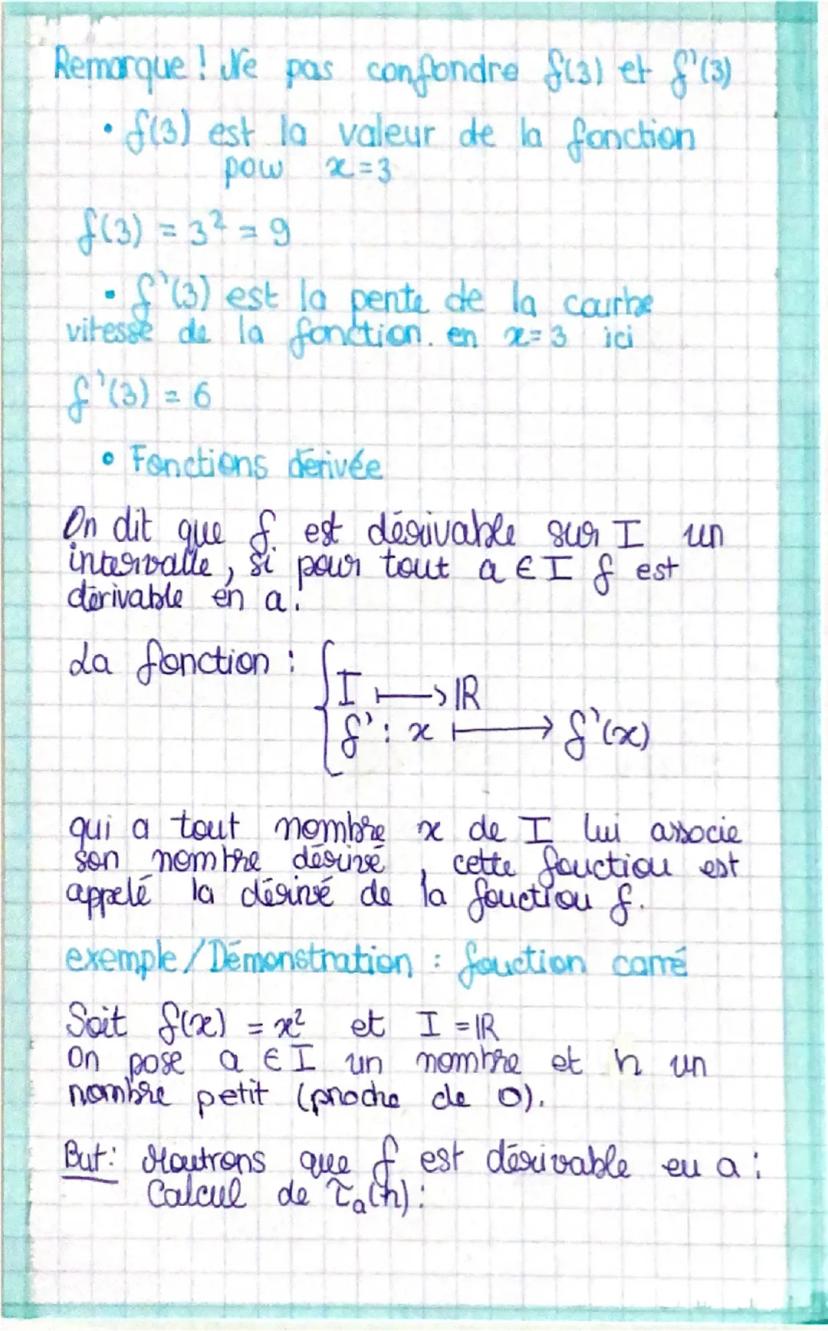 Remarque ! Ne pas confondre f(3) et f'(3)
• f(3) est la valeur de la fonction
pour x=3
f(3) = 3² = 9
• f'(3) est la pente de la courbe
vitesse de la fonction. en x=3 ici
f'(3) = 6
• Fonctions dérivée
On dit que f est dérivable sur I un
intervalle, si pour tout a ∈ I f est
dérivable en a.
La fonction : { I ⟼ ℝ
f' : x ⟼ f'(x)
qui a tout nombre x de I lui associe
son nombre dérivé, cette fonction est
appelé la dérivé de la fonction f.
exemple/Démonstration : fonction carré
Soit f(x) = x² et I = ℝ
On pose a ∈ I un nombre et h un
nombre petit (proche de 0).
But : Montrons que f est dérivable en a :
Calcul de τₐ(h) :